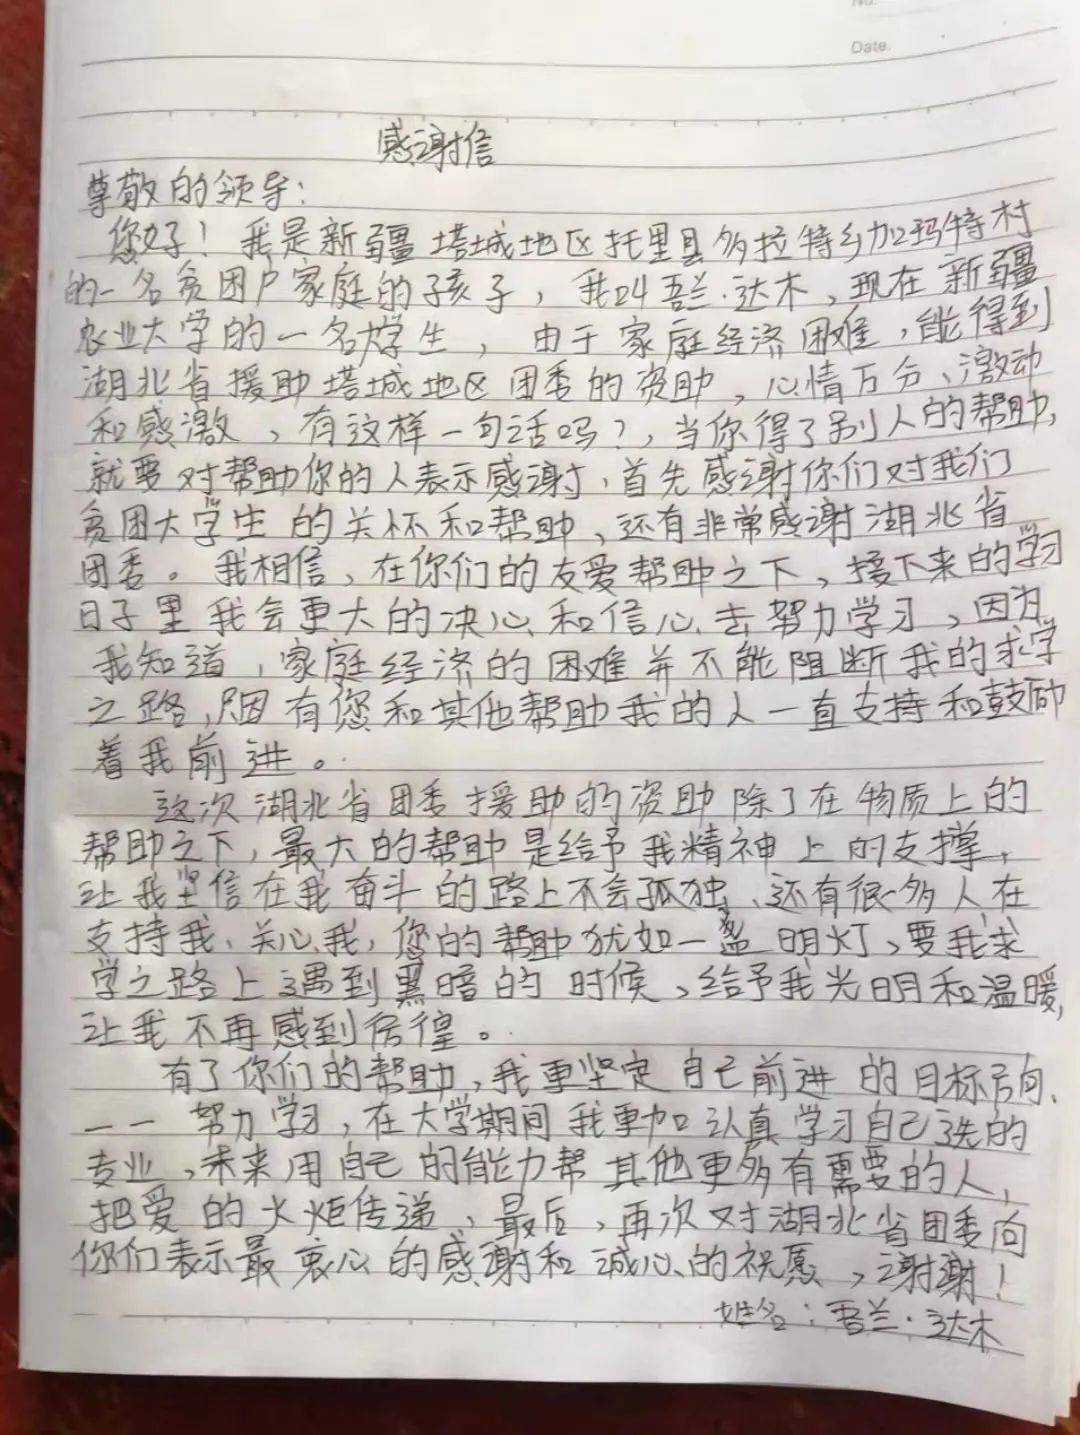 No.
Date.
感谢信
尊敬的领导：
您好！我是新疆塔城地区托里县多拉特乡加玛特村
的一名贫困户家庭的孩子，我叫吾兰·达木，现在新疆
农业大学的一名大学生，由于家庭经济困难，能得到
湖北省援助塔城地区团委的资助，心情万分、激动
和感激，有这样一句话吗？，当你得了别人的帮助，
就要对帮助你的人表示感谢，首先感谢你们对我们
贫困大学生的关怀和帮助，还有非常感谢湖北省
团委。我相信，在你们的友爱帮助之下，接下来的学习
日子里我会更大的决心和信心去努力学习，因为
我知道，家庭经济的困难并不能阻断我的求学
之路，因有您和其他帮助我的人一直支持和鼓励
着我前进。
这次湖北省团委援助的资助除了在物质上的
帮助之下，最大的帮助是给予我精神上的支撑，
让我坚信在我奋斗的路上不会孤独，还有很多人在
支持我、关心我，您的帮助犹如一盏明灯，要我求
学之路上遇到黑暗的时候，给予我光明和温暖，
让我不再感到彷徨。
有了你们的帮助，我更坚定自己前进的目标方向，
——努力学习，在大学期间我更加认真学习自己选的
专业，未来用自己的能力帮其他更多有需要的人，
把爱的火炬传递，最后，再次对湖北省团委向
你们表示最衷心的感谢和诚心的祝愿，谢谢！
姓名：吾兰·达木